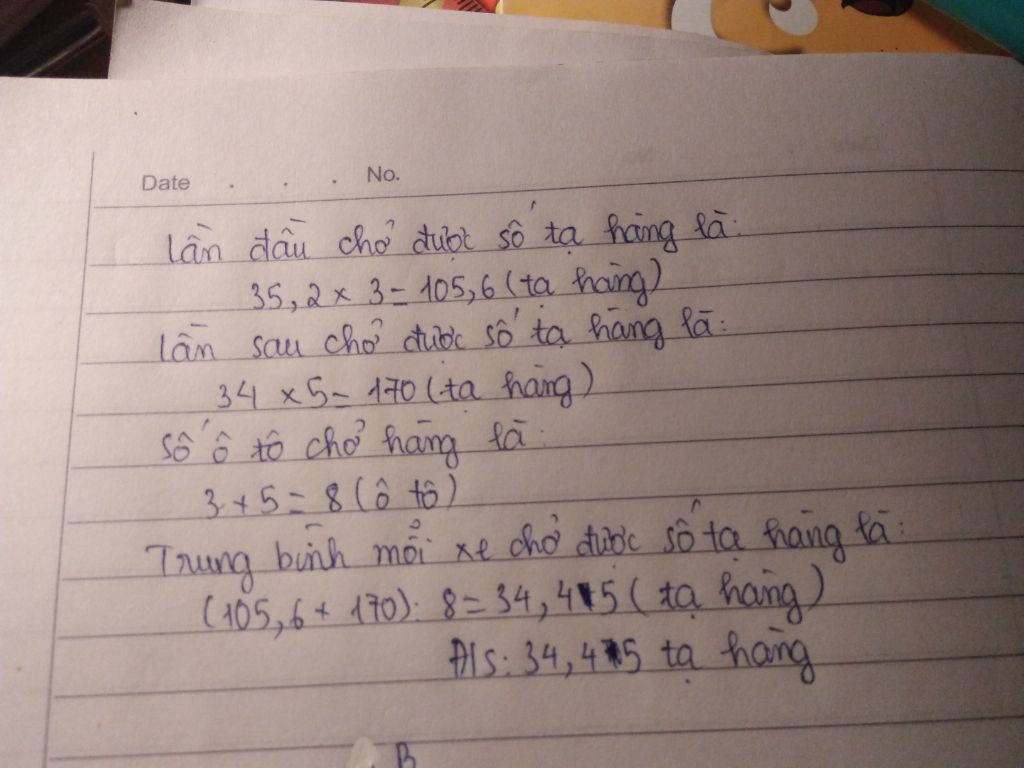 Date . . . No.
Lần đầu chở được số tạ hàng là:
35,2 x 3 = 105,6 (tạ hàng)
Lần sau chở được số tạ hàng là:
34 x 5 = 170 (tạ hàng)
Số ô tô chở hàng là:
3 + 5 = 8 (ô tô)
Trung bình mổi xe chở được số tạ hàng là:
(105,6 + 170): 8 = 34,45 (tạ hàng)
Đ/s: 34,45 tạ hàng
B